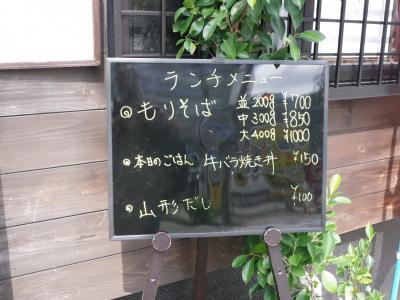 ランチメニュー
◎もりそば 並200g ¥700
中300g ¥850
大400g ¥1000
◎本日のごはん 牛バラ焼き丼 ¥150
◎山形だし ¥100